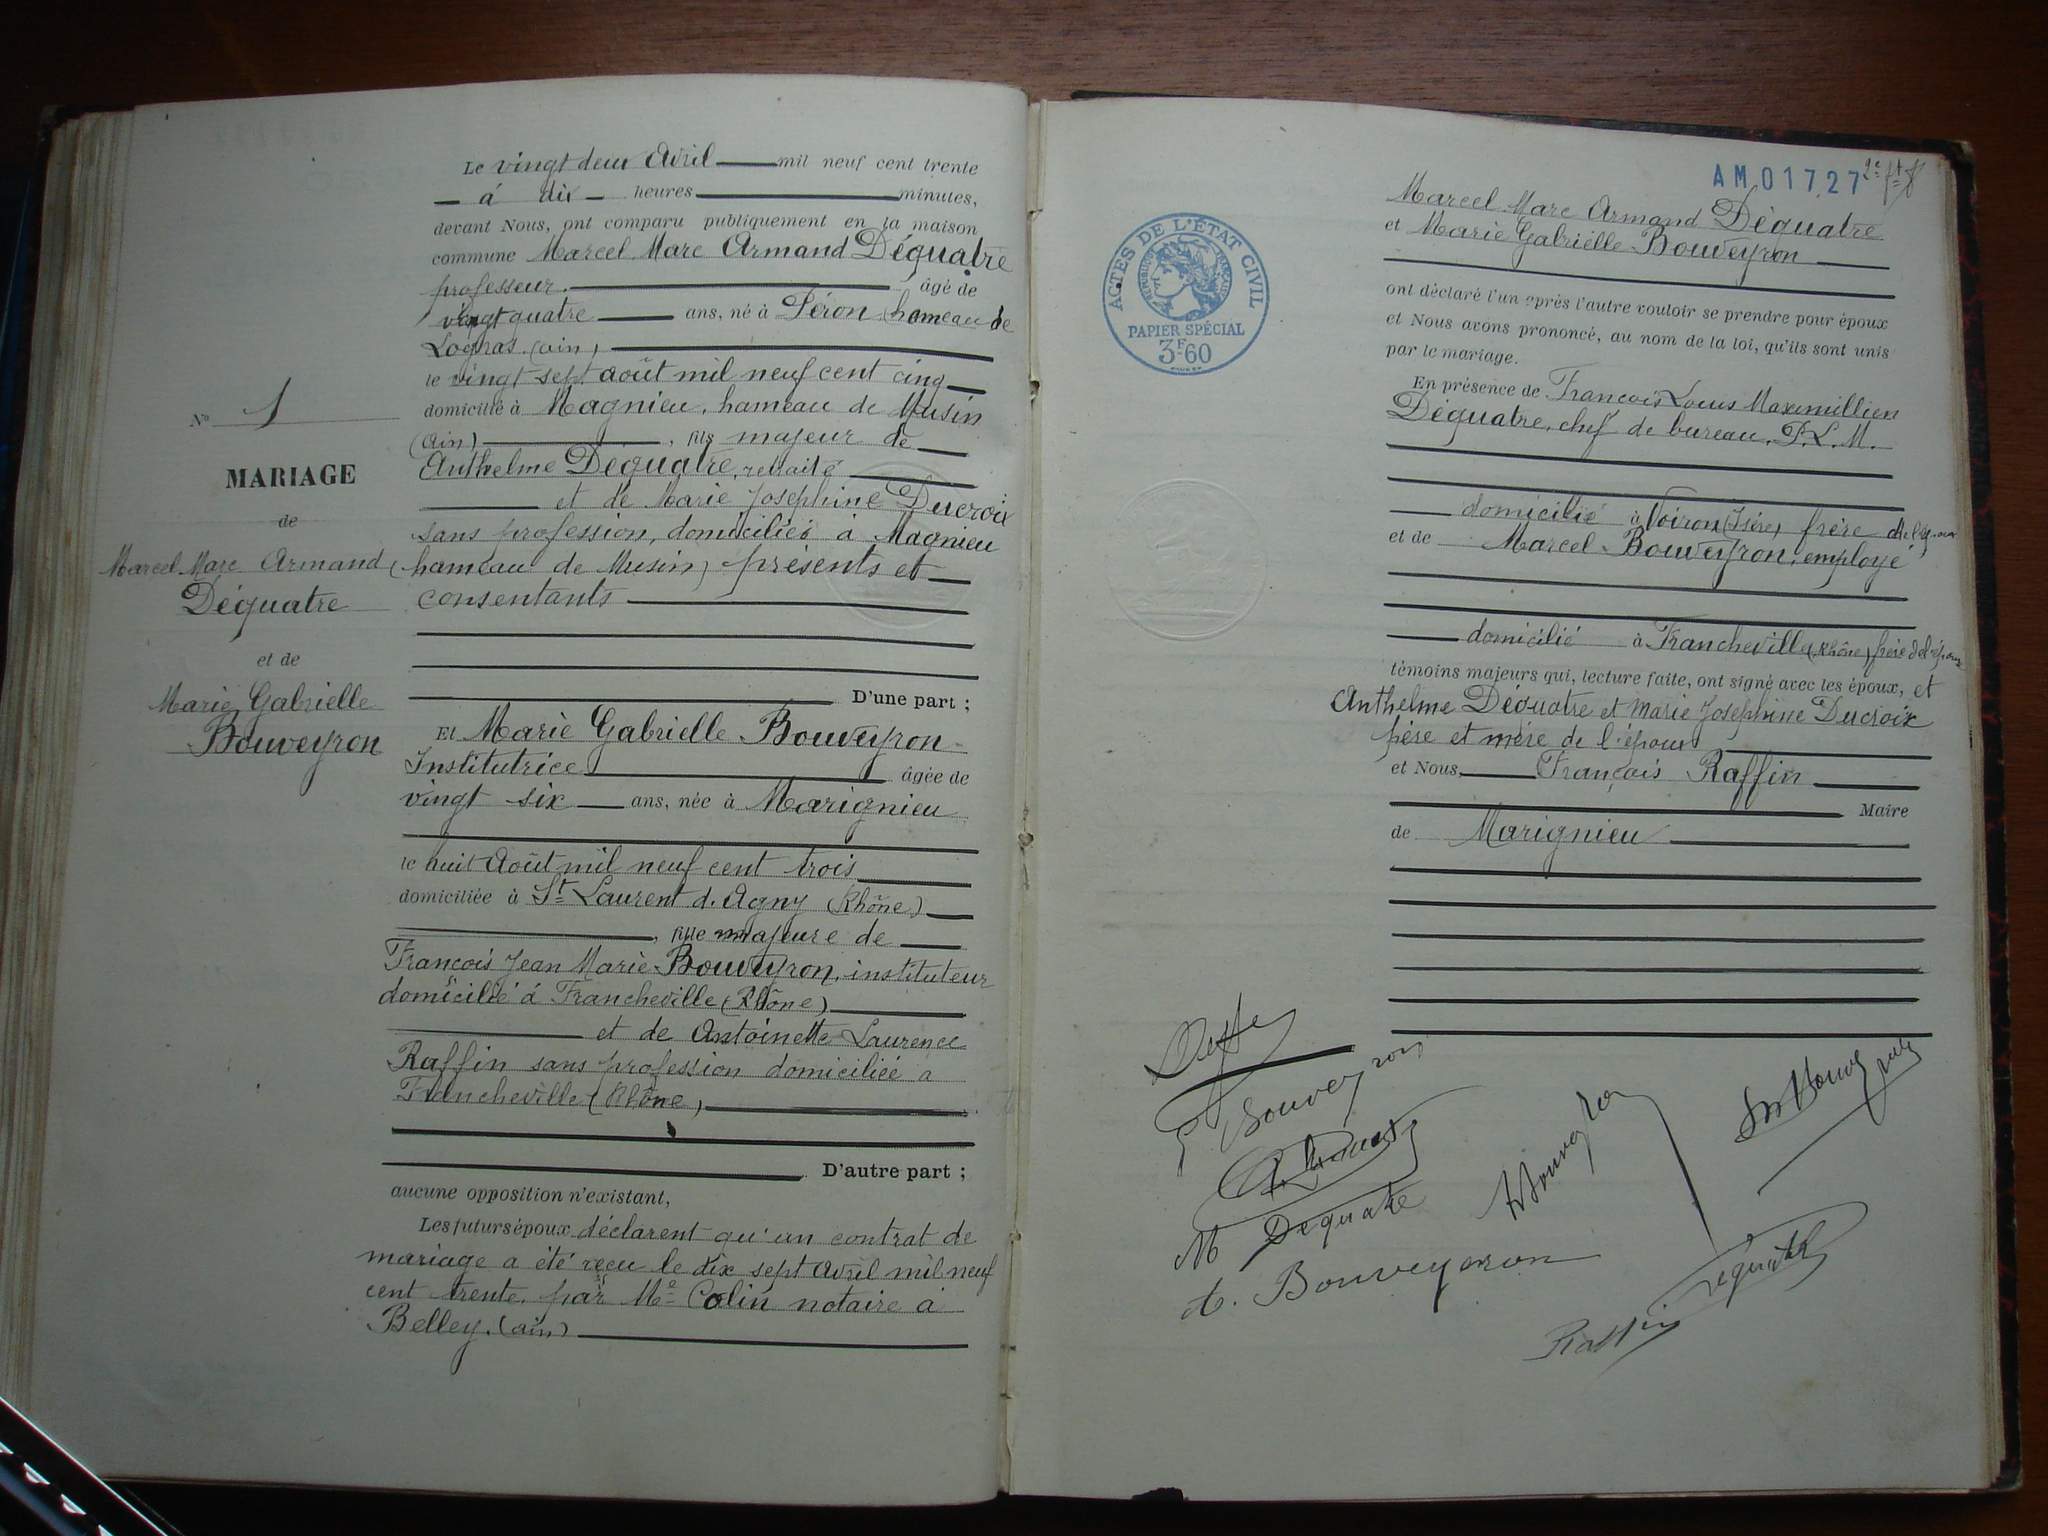 Le vingt deux Avril mil neuf cent trente
à dix heures minutes,
devant Nous, ont comparu publiquement en la maison
commune Marcel Marc Armand Déquatre
professeur. âgé de
vingt quatre ans, né à Péron (hameau de
Logras (ain)
le vingt sept août mil neuf cent cinq
domicilié à Magnieu, hameau de Musin
(Ain) , fils majeur de
Anthelme Déquatre, retraité
et de Marie Josephine Ducroix
sans profession, domiciliés à Magnieu
(hameau de Musin) présents et
consentants
D'une part ;
Et Marie Gabrielle Bouveyron
Institutrice âgée de
vingt six ans, née à Marignieu
le huit Août mil neuf cent trois
domiciliée à St Laurent d'Agny (Rhône)
, fille majeure de
François Jean Marie Bouveyron, instituteur
domicilié à Francheville (Rhône)
et de Antoinette Laurence
Raffin sans profession domiciliée à
Francheville (Rhône)
D'autre part ;
aucune opposition n'existant,
Les futurs époux déclarent qu'un contrat de
mariage a été reçu le dix sept Avril mil neuf
cent trente, par Me Colin notaire à
Belley. (ain)
No 1
MARIAGE
de
Marcel Marc Armand
Déquatre
et de
Marie Gabrielle
Bouveyron
AM 01727
ACTES DE L'ÉTAT CIVIL
RÉPUBLIQUE FRANÇAISE
PAPIER SPÉCIAL
3F60
Marcel Marc Armand Déquatre
et Marie Gabrielle Bouveyron
ont déclaré l'un après l'autre vouloir se prendre pour époux
et Nous avons prononcé, au nom de la loi, qu'ils sont unis
par le mariage.
En présence de François Louis Maximillien
Déquatre, chef de bureau, P.L.M.
domicilié à Voiron (Isère) frère de l'époux
et de Marcel Bouveyron, employé
domicilié à Francheville (Rhône) frère de l'épouse
témoins majeurs qui, lecture faite, ont signé avec les époux, et
Anthelme Déquatre et Marie Josephine Ducroix
père et mère de l'époux
et Nous, François Raffin
Maire
de Marignieu
Bouveyron
M Dequatre
A. Bouveyron
Déquatre
Raffin